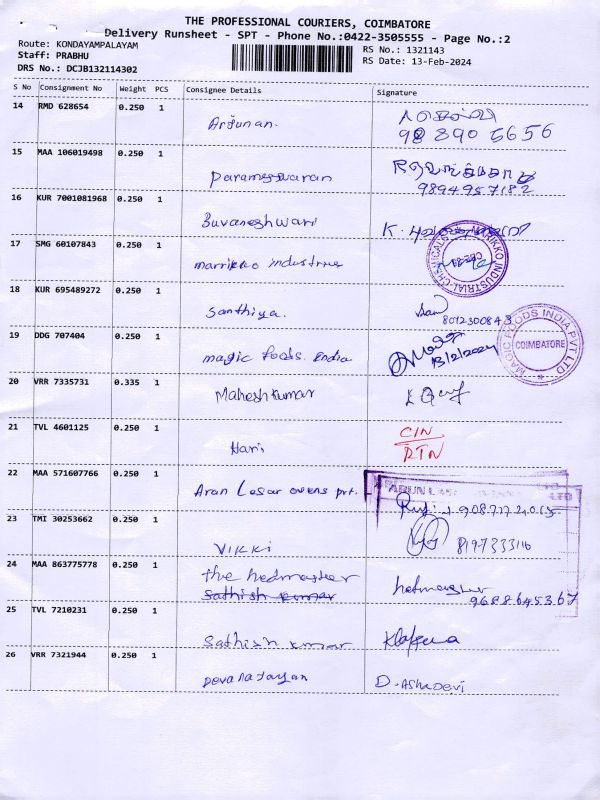 THE PROFESSIONAL COURIERS, COIMBATORE
Delivery Runsheet - SPT - Phone No.:0422-3505555 - Page No.:2
Route: KONDAYAMPALAYAM
Staff: PRABHU
DRS No.: DCJB132114302
RS No.: 1321143
RS Date: 13-Feb-2024
S No Consignment No Weight PCS Consignee Details Signature
14 RMD 628654 0.250 1
Arjunan.
98 890 5656
15 MAA 106019498 0.250 1
Parameswaran
9894957182
16 KUR 7001081968 0.250 1
Buvaneshwari
K.
17 SMG 60107843 0.250 1
marrikko industries
18 KUR 695489272 0.250 1
Santhiya.
8012300843
19 DDG 707404 0.250 1
magic foods. India
13/2/2024
MAGIC FOODS INDIA PVT LTD
COIMBATORE
20 VRR 7335731 0.335 1
Maheshkumar
21 TVL 4601125 0.250 1
Hari
CIN
RTN
22 MAA 571607766 0.250 1
Aran Lesar ovens prt.
23 TMI 30253662 0.250 1
Vikki
8197333116
24 MAA 863775778 0.250 1
the hedmaster
Sathish kumar
hedmaster
9688645367
25 TVL 7210231 0.250 1
Sathish kumar
26 VRR 7321944 0.250 1
Devanarayan
D. Ashadevi